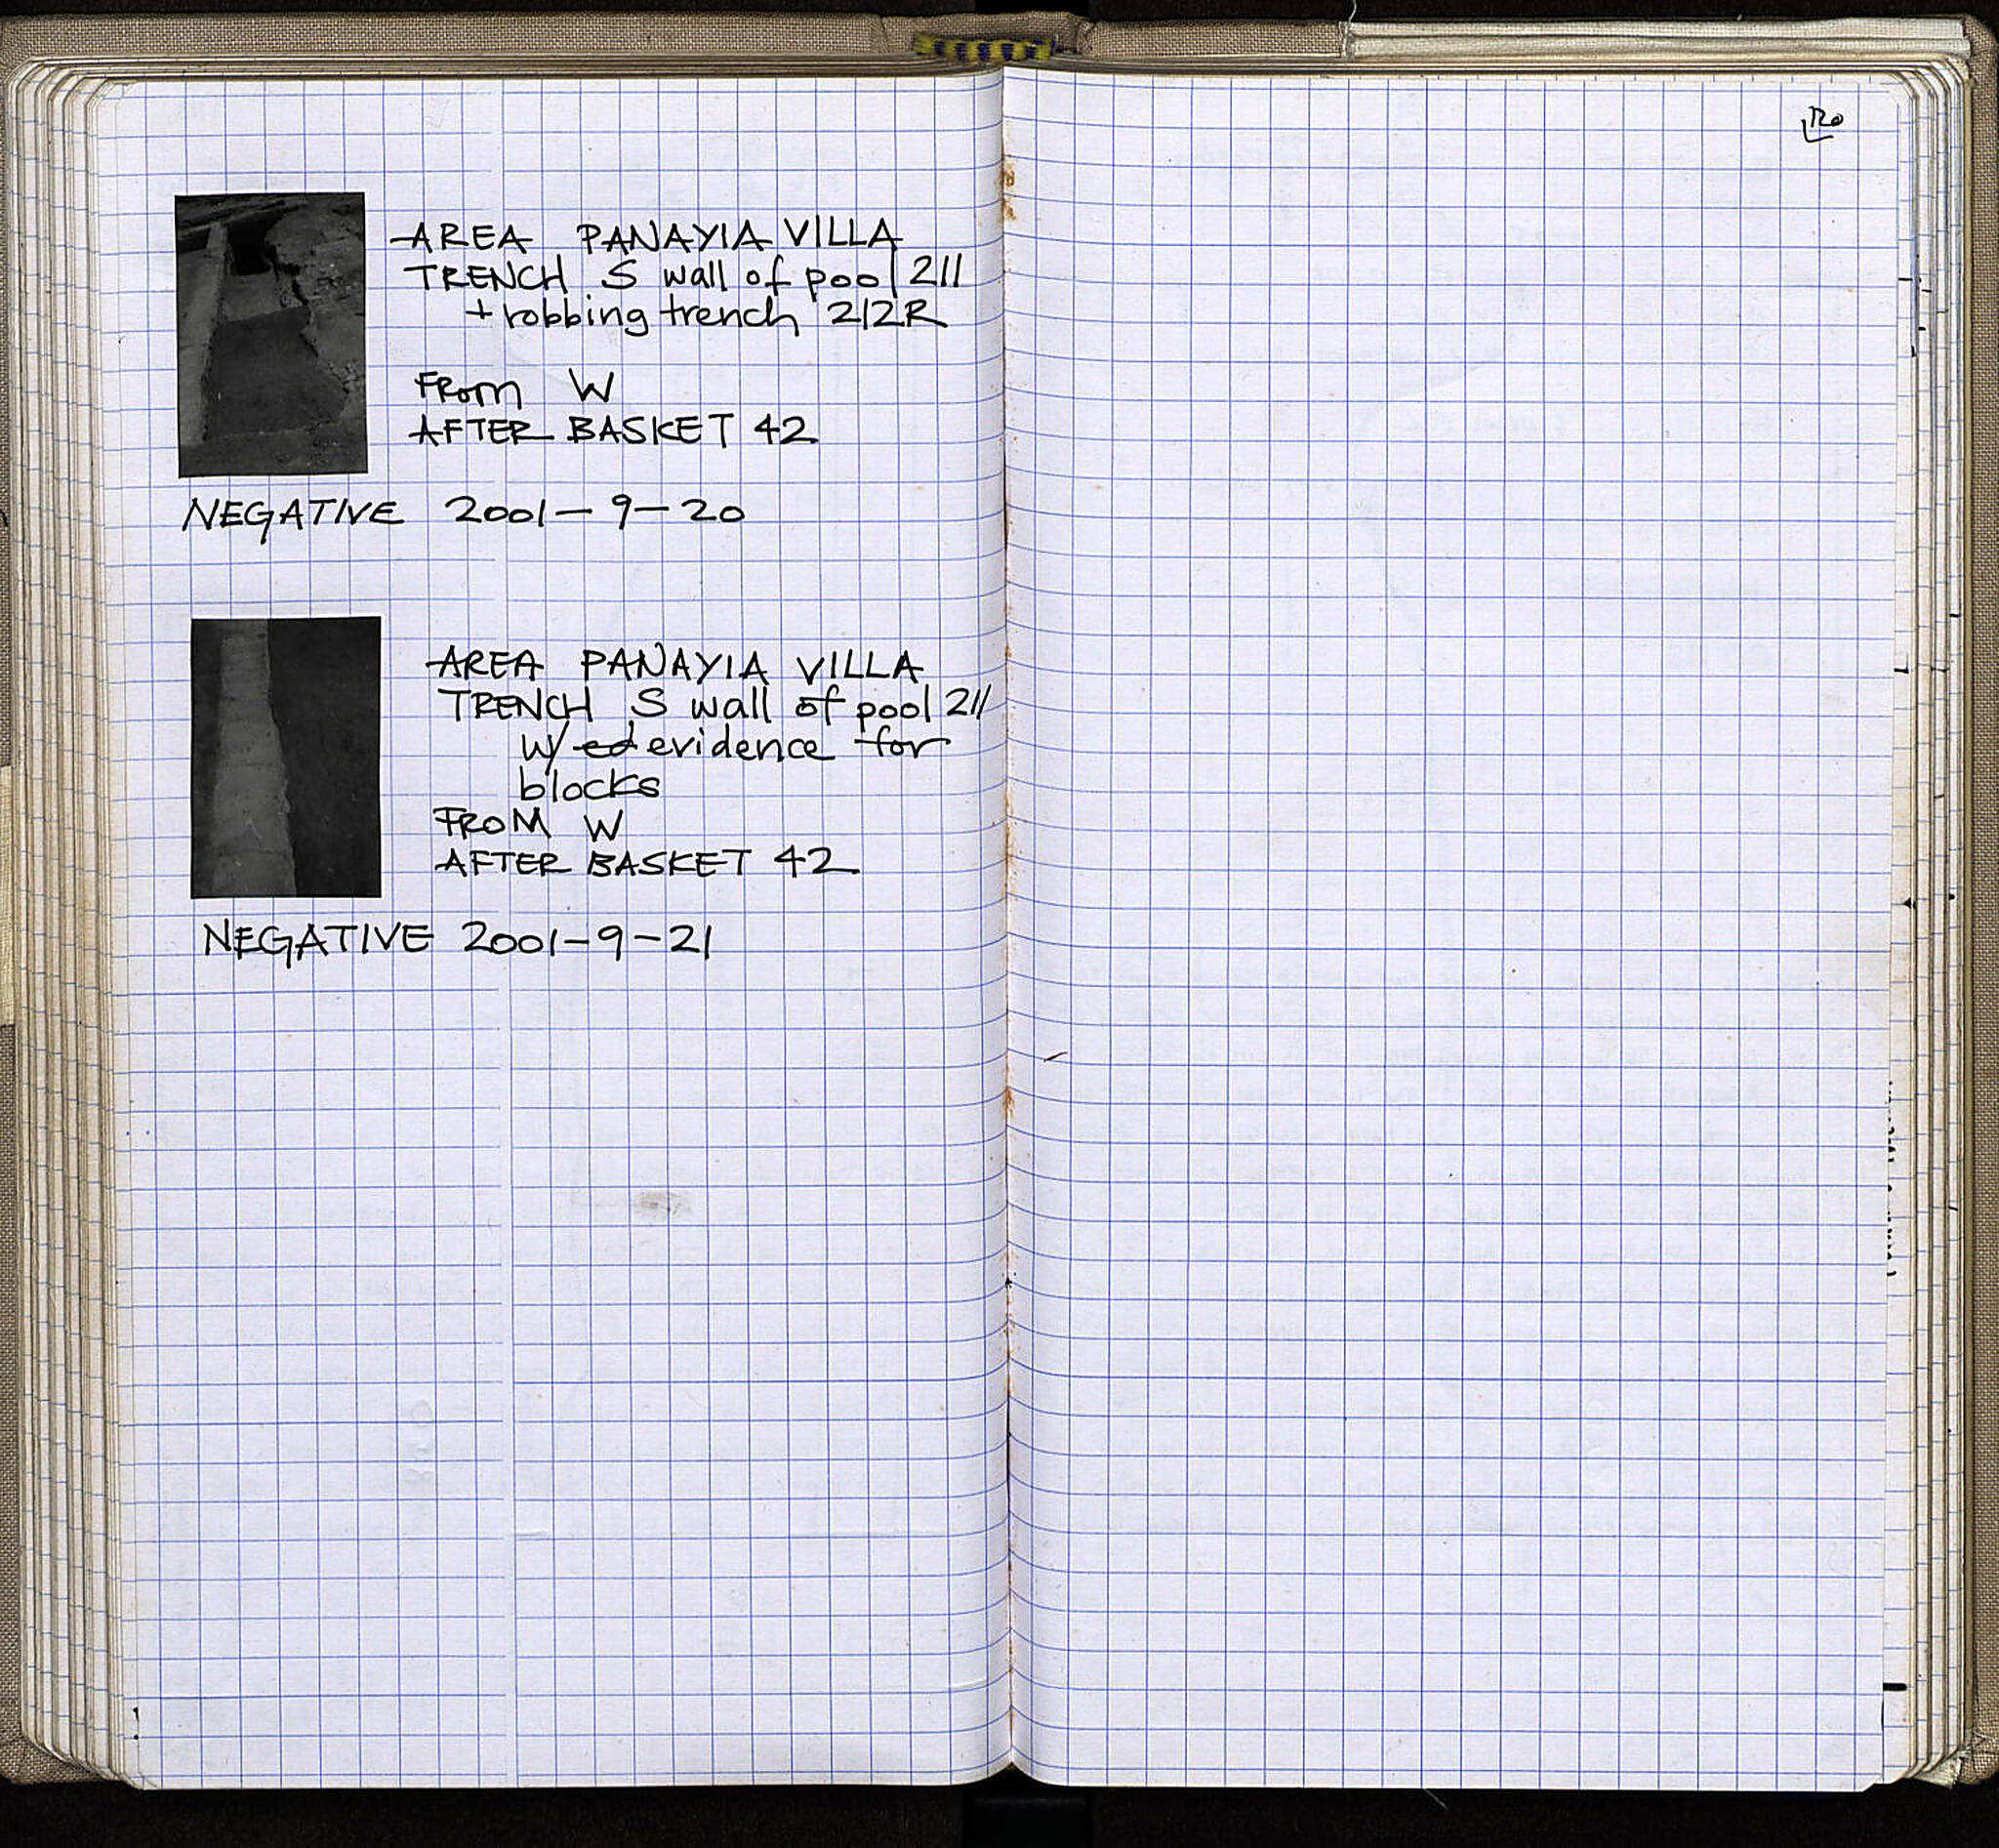 AREA PANAYIA VILLA
TRENCH S wall of pool 211
+ robbing trench 212R
FROM W
AFTER BASKET 42
NEGATIVE 2001-9-20
AREA PANAYIA VILLA
TRENCH S wall of pool 211
w/ ed evidence for
blocks
FROM W
AFTER BASKET 42
NEGATIVE 2001-9-21